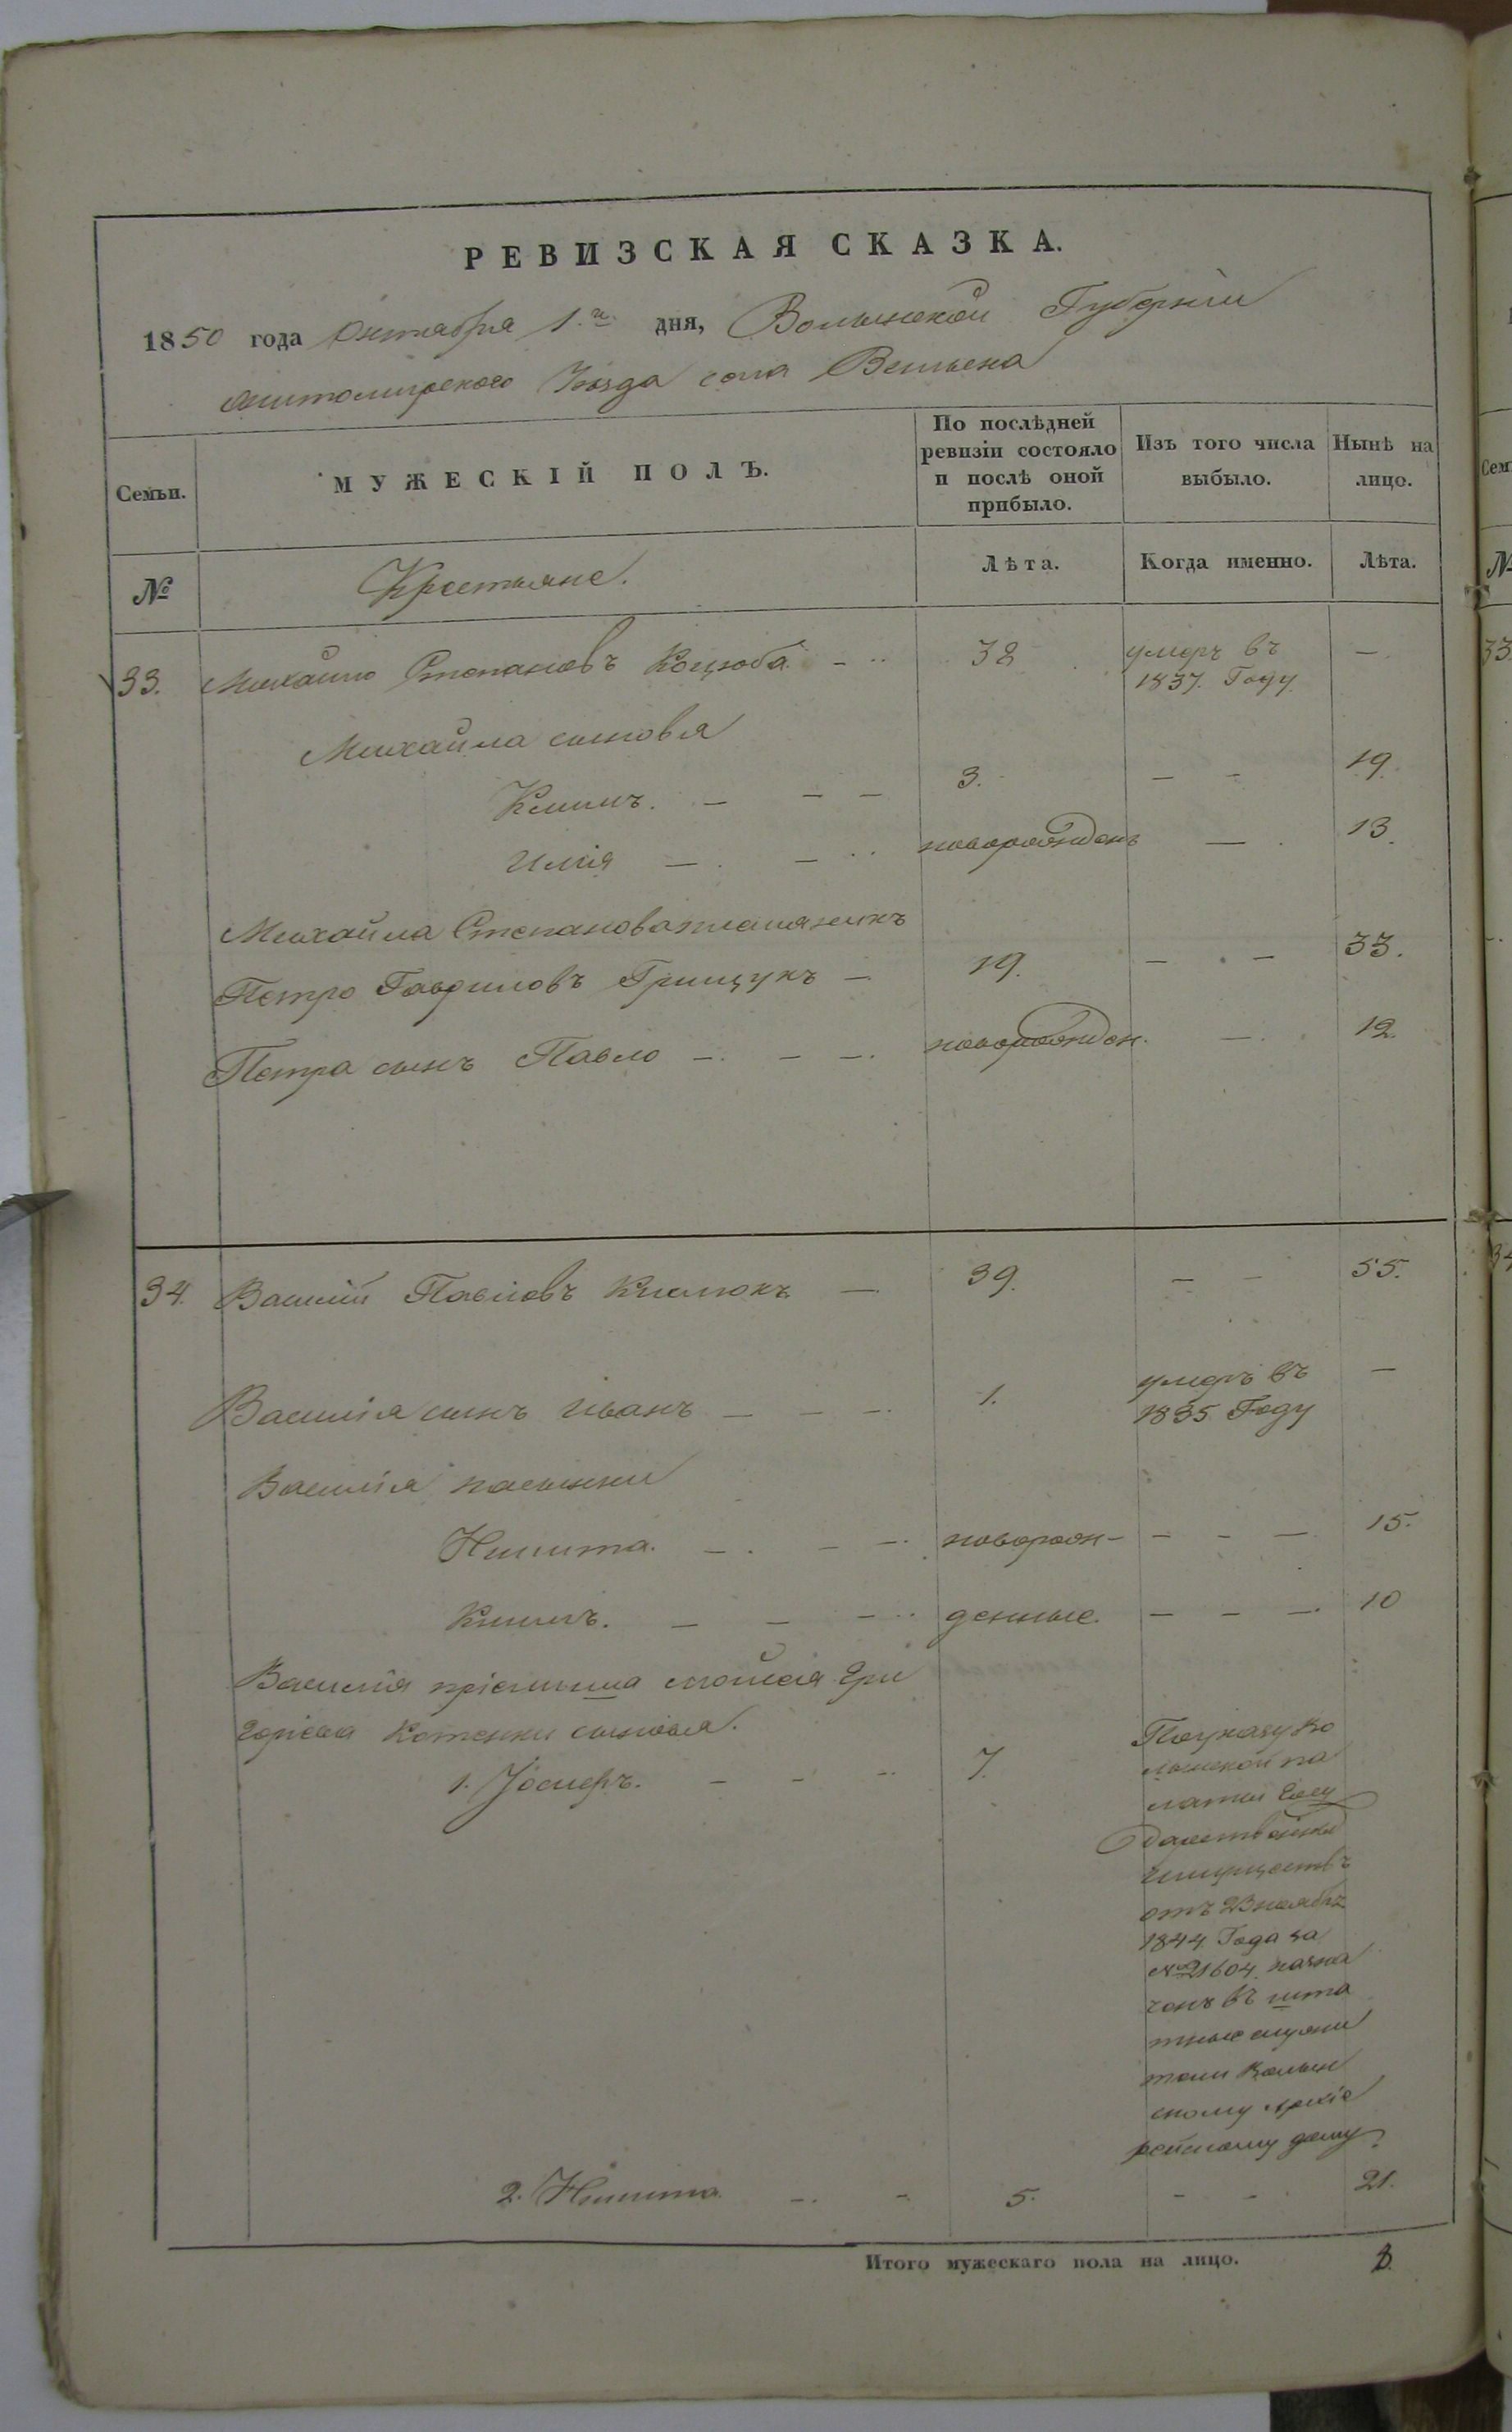 РЕВИЗСКАЯ СКАЗКА.
1850 года Октября 1.го дня, Волынской Губерніи
Житомирского Уѣзда села
Семьи.
МУЖЕСКІЙ ПОЛЪ.
По послѣдней ревизіи состояло и послѣ оной прибыло.
Изъ того числа выбыло.
Нынѣ на лицо.
№
Крестьяне.
Лѣта.
Когда именно.
Лѣта.
33. Михайло Степановъ Коцюба 38 умеръ въ —
1837. Году
Михайла сыновья
Климъ. — — — 3. — — 19.
Илія — — новорожденъ — 13.
Михайла Степанова племянникъ
Петро Гавриловъ Грищукъ — 19. — — 33.
Петра сынъ Павло — — — новорожден. — 12.
34. Василій Павловъ — 39. — — 55.
Василія сынъ Иванъ — — — 1. умеръ въ —
1835 Году
Василія пасынки
Никита. — — — новорож- — — — 15.
Климъ. — — — денные. — — — 10
Василія пріемыша Гри
горіева сыновья.
1. Іосифъ. — — — 7. По указу Во
лынской па
латы Госу
дарственныхъ
Имуществъ
отъ 23 ноября
1844 Года за
№ 21604. назна
ченъ въ шта
тные служи
тели Волын
скому Архіе
рейскому дому.
2. Никита — — 5. — — 21.
Итого мужескаго пола на лицо. 8.